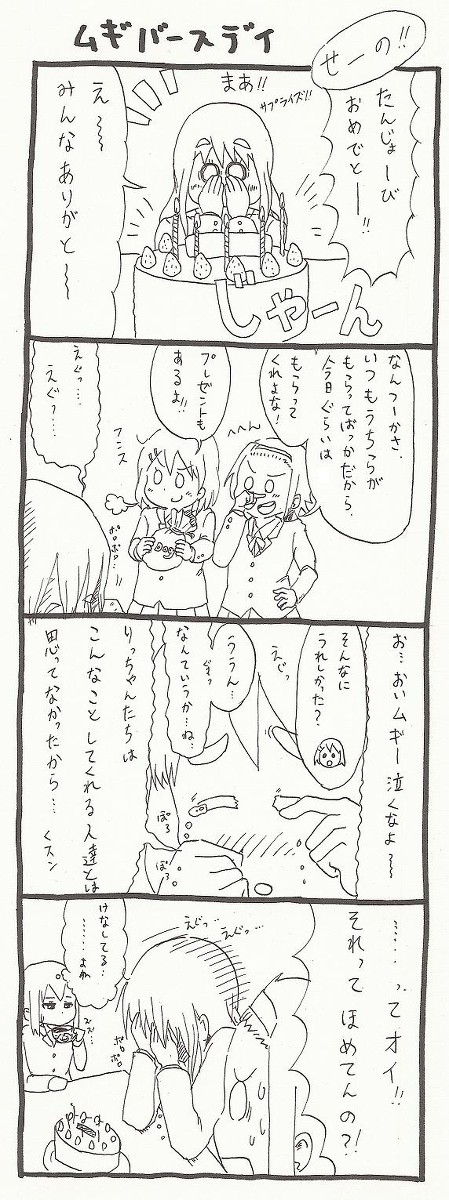 ムギバースデイ
せーの!!
たんじょーび
おめでとーー!!
まあ!!
サプライズ!!
え〜〜
みんなありがと〜〜
じゃーん
なんつーかさ、
いつもうちらが
もらってばっかだから、
今日ぐらいは
もらって
くれよな!
へへーん
プレゼントも
あるよ!!
フンス
えぐっ…
えぐっ…
ポロポロ…
お…おいムギー泣くなよ〜〜
そんなに
うれしかった?
えぐっ
ううん…
ぐすっ
なんていうか…ね…
りっちゃんたちは
こんなことしてくれる人達とは
思ってなかったから…
くスン
ぽろ
ぽろ
……ってオイ!!
それってほめてんの?!
えぐっ…
えぐっ…
ポロ
ポロ
けなしてる…
……よね
ずず…